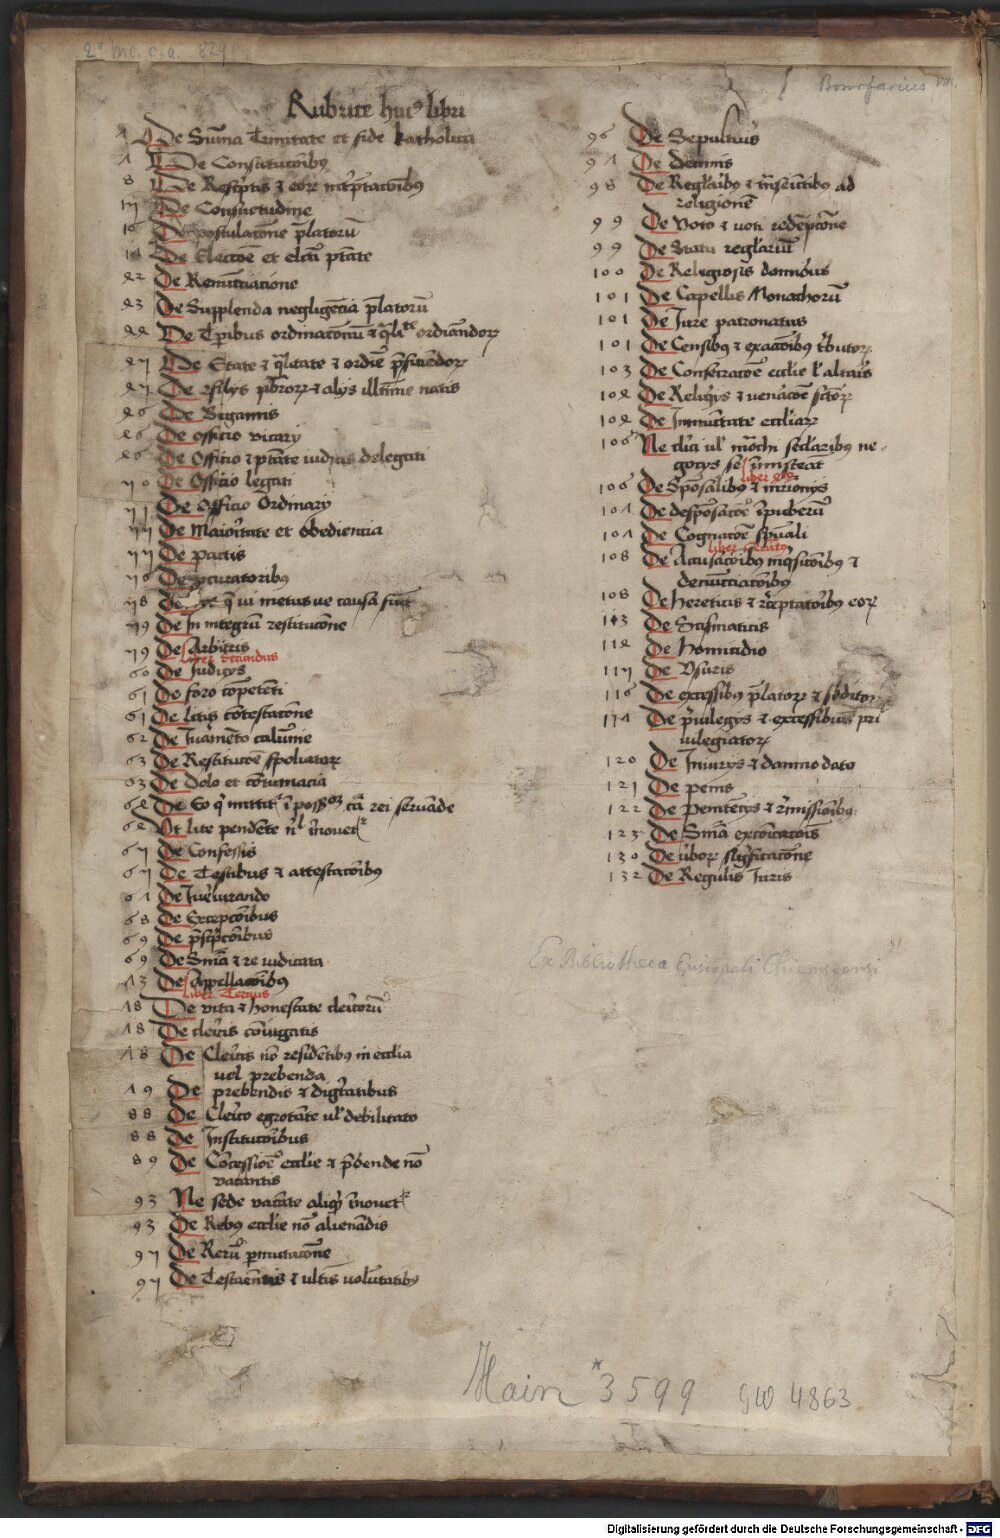 2° Inc. c. a. 829
Bonifacius VIII.
Rubrice huiꝰ libri
De Su͞ma Trinitate et fide katholica
De Constitucio͞ibꝯ
8 De Resc͞ptis ⁊ eoꝝ int͞p͞tacio͞ibꝯ
De Consuetudine
De postulacio͞ne p͞latorū
De Elecco͞e et elc͞ti p͞tate
De Renu͞ctiacione
De Supplenda negligēcia p͞latorū
De T͞pibus ordinacionū ⁊ q͞litate ordiandoꝝ
De Etate ⁊ q͞litate ⁊ ordi͞e p͞ficiendoꝝ
De filijs p͞broꝝ ⁊ alijs ill͞ime natis
De Bigamis
De officio vicarij
De Officio ⁊ p͞tate iudicis delegati
De Officio legati
De Officio Ordinarij
De Maioritate et obediencia
De pactis
De procuratoribꝯ
De hijs que vi metusue causa fiunt
De In integrū restitucio͞ne
De Arbitris
liber secundus
60 De Judicijs
61 De foro co͞petenti
61 De litis co͞testacio͞ne
62 De Iuramēto calu͞nie
63 De Restitucio͞e spoliatoꝝ
63 De Dolo et co͞tumacia
De Eo q͞ mittit͞ i͞ poss͞oꝫ ca͞ rei seruande
Vt lite pende͞te n͞l i͞nouet͞
De Confessis
De Testibus ⁊ attestacio͞ibꝯ
De Iureiurando
68 De Excepcio͞ibus
69 De p͞scrip͞cio͞ibus
69 De S͞nia ⁊ re iudicata
De Appellacio͞ibꝯ
liber Tercius
De vita ⁊ honestate cl͞icorū
De cl͞icis co͞iugatis
De Clericis no͞ reside͞tibꝯ in eccl͞ia
uel prebenda
De prebendis ⁊ dig͞tatibus
88 De Clerico egrota͞te ul͞ debilitato
88 De Institucio͞ibus
89 De Co͞cessio͞e eccl͞ie ⁊ p͞bende no͞
vacantis
93 Ne sede vaca͞te aliq͞d i͞nouet͞
93 De Rebꝯ eccl͞ie no͞ alienādis
De Rerū p͞mutacio͞ne
De Testame͞tis ⁊ ultis volu͞tatibꝯ
96 De Sepulturis
De decimis
98 De Reg͞laribꝯ ⁊ tra͞seu͞tibꝯ ad
religionē
99 De Voto ⁊ uoti rede͞pcio͞ne
99 De Statu reg͞lariū
100 De Religiosis domibus
101 De Capellis Monachorū
101 De Iure patronatus
101 De Censibꝯ ⁊ exaccio͞ibꝯ
103 De Consecracio͞e eccl͞ie ul͞ altaris
De Reliq͞ijs ⁊ uenacio͞e s͞ctoꝝ
De Immunitate eccl͞iaꝝ
106 Ne cl͞ici ul͞ mo͞chi sec͞laribꝯ ne-
gocijs se i͞misceāt
liber 4tus
106 De Sponsalibꝯ ⁊ m͞rimonijs
De desponsacio͞e i͞puberū
De Cognacio͞e sp͞uali
liber Quintꝯ
108 De Accusacio͞ibꝯ inq͞sicio͞ibꝯ ⁊
denu͞ciacio͞ibꝯ
108 De hereticis ⁊ receptatoribꝯ eoꝝ
113 De Scismaticis
De Homicidio
De Vsuris
116 De excessibꝯ p͞latoꝝ ⁊ s͞bditoꝝ
De priuilegijs ⁊ excessibus pri
uilegiatoꝝ
120 De Iniurijs ⁊ damno dato
121 De penis
122 De Penite͞cijs ⁊ r͞missio͞ibꝯ
123 De S͞nia exco͞icacio͞is
130 De u͞boꝝ sig͞ficacio͞ne
132 De Regulis Iuris
Ex Bibliotheca Episcopali Chiemsensi
Hain *3599 GW 4863
Digitalisierung gefördert durch die Deutsche Forschungsgemeinschaft - DFG